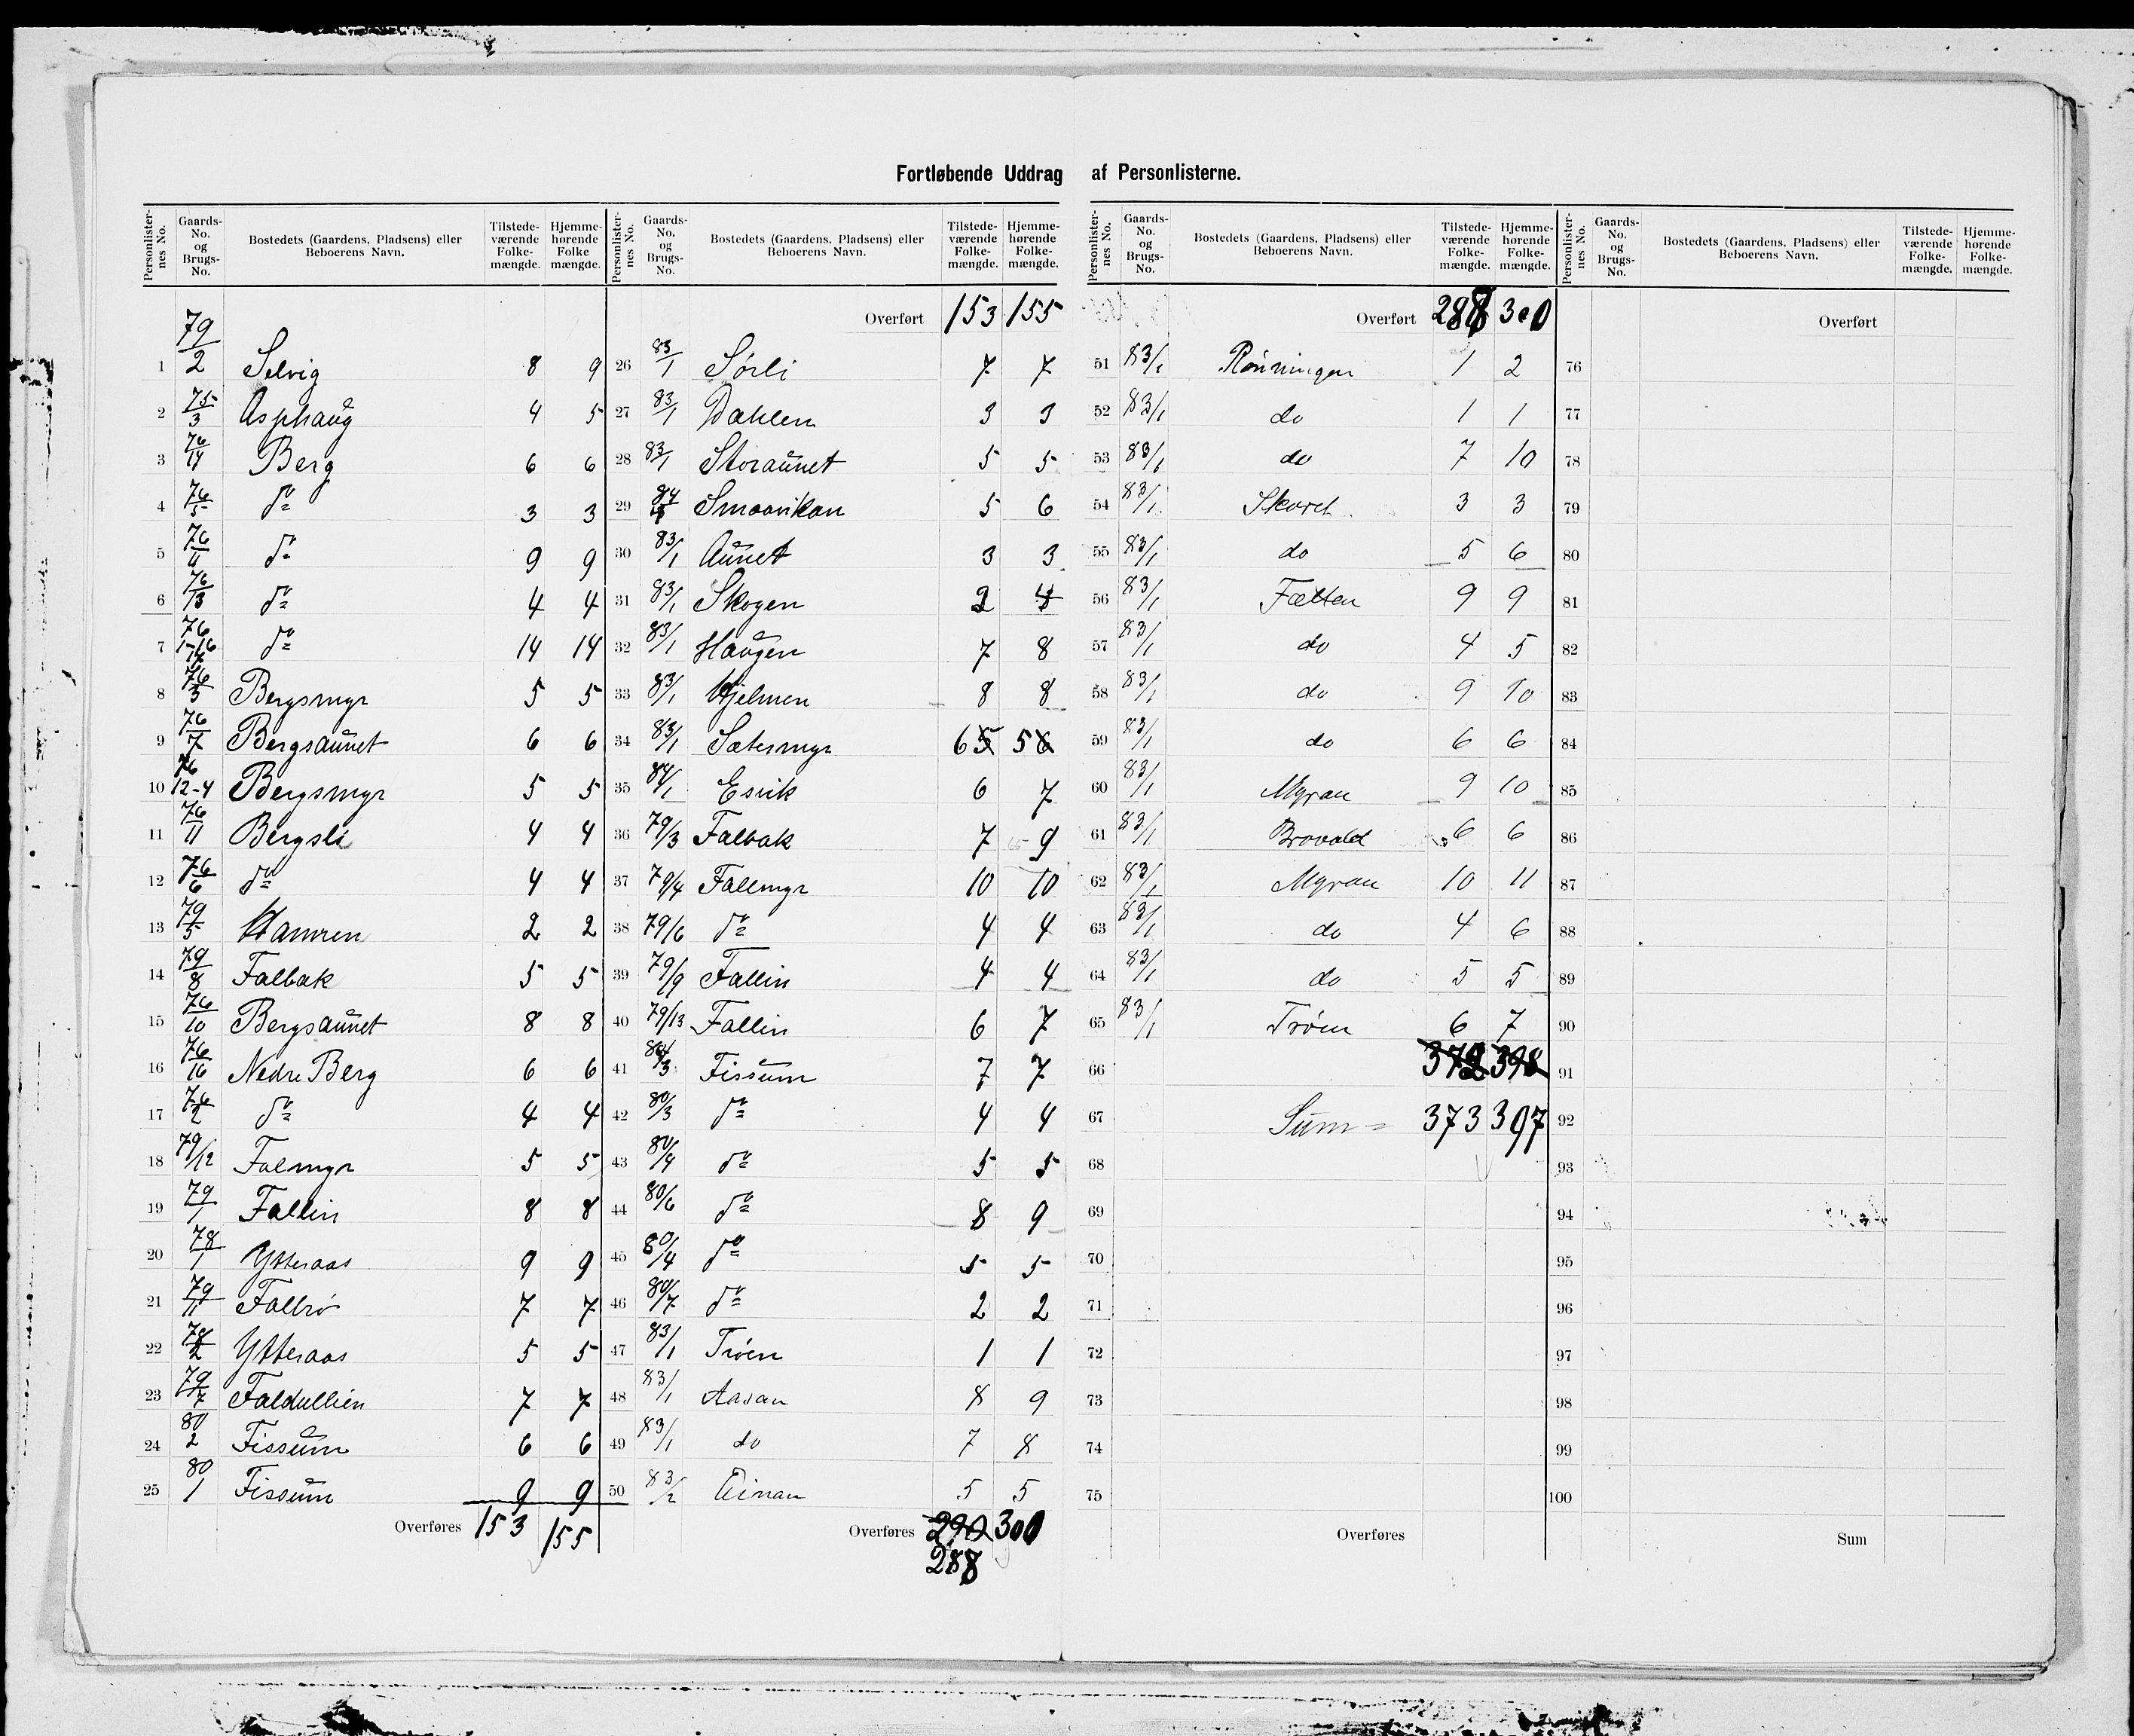 Fortløbende Uddrag af Personlisterne.
Personlister-nes No. Gaards-No. og Brugs-No. Bostedets (Gaardens, Pladsens) eller Beboerens Navn. Tilstede-værende Folke-mængde. Hjemme-hørende Folke mængde.
79/2
1 Selvig 8 9
2 75/3 Asphaug 4 5
3 76/14 Berg 6 6
4 76/5 do 3 3
5 76/11 do 9 9
6 76/13 do 4 4
7 76/1-16 do 14 14
8 76/3 Bergsmyr 5 5
9 76/7 Bergsaunet 6 6
10 76/12-4 Bergsmyr 5 5
11 76/11 Bergsli 4 4
12 76/6 do 4 4
13 79/5 Hamren 2 2
14 79/8 Falbak 5 5
15 76/10 Bergsaunet 8 8
16 76/16 Nedre Berg 6 6
17 76/2 do 4 4
18 79/12 Falmyr 5 5
19 79/1 Fallin 8 8
20 78/1 Ytteraas 9 9
21 79/11 Faltrø 7 7
22 78/2 Ytteraas 5 5
23 79/7 Faldullien 7 7
24 80/2 Fissum 6 6
25 80/1 Fissum 9 9
Overføres 153 155
Personlister-nes No. Gaards-No. og Brugs-No. Bostedets (Gaardens, Pladsens) eller Beboerens Navn. Tilstede-værende Folke-mængde. Hjemme-hørende Folke-mængde.
Overført 153 155
26 83/1 Sørli 7 7
27 83/1 Dahlen 3 3
28 83/1 Storaunet 5 5
29 84 Smaavikan 5 6
30 83/1 Aunet 3 3
31 83/1 Skogen 2
32 83/1 Haugen 7 8
33 83/1 Hjelmen 8 8
34 83/1 Sætermyr 6 5 5 6
35 84/1 Esvik 6 7
36 79/3 Falbak 7 9
37 79/4 Fallmyr 10 10
38 79/6 do 4 4
39 79/9 Fallin 4 4
40 79/13 Fallin 6 7
41 80/3 Fissum 7 7
42 80/3 do 4 4
43 80/9 do 5 5
44 80/6 do 8 9
45 80/4 do 5 5
46 80/7 do 2 2
47 83/1 Trøen 1 1
48 83/1 Aasan 8 9
49 83/1 do 7 8
50 83/2 Einan 5 5
Overføres 290 300
288
Personlister-nes No. Gaards-No. og Brugs-No. Bostedets (Gaardens, Pladsens) eller Beboerens Navn. Tilstede-værende Folke-mængde. Hjemme-hørende Folke-mængde.
Overført 288 300
51 83/1 Rønningen 1 2
52 83/1 do 1 1
53 83/1 do 7 10
54 83/1 Skaret 3 3
55 83/1 do 5 6
56 83/1 Fætten 9 9
57 83/1 do 4 5
58 83/1 do 9 10
59 83/1 do 6 6
60 83/1 Myran 9 10
61 83/1 Brovold 6 6
62 83/1 Myran 10 11
63 83/1 do 4 6
64 83/1 do 5 5
65 83/1 Trøen 6 7
66 372 398
67 Sum = 373 397
68
69
70
71
72
73
74
75
Overføres
Personlister-nes No. Gaards-No. og Brugs-No. Bostedets (Gaardens, Pladsens) eller Beboerens Navn. Tilstede-værende Folke-mængde. Hjemme-hørende Folke-mængde.
Overført
76
77
78
79
80
81
82
83
84
85
86
87
88
89
90
91
92
93
94
95
96
97
98
99
100
Sum